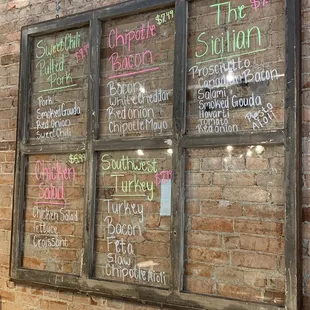 Sweet Chili
Pulled
Pork
Pork
Smoked Gouda
Red Onion
Sweet Chili
Chipotle
Bacon
Bacon
White Cheddar
Red Onion
Chipotle Mayo
The
Sicilian
Prosciutto
Canadian Bacon
Salami
Smoked Gouda
Havarti
Tomato
Red Onion
Pesto
Aioli
Chicken
Salad
Chicken Salad
Lettuce
Croissant
Southwest
Turkey
Turkey
Bacon
Feta
Slaw
Chipotle Aioli